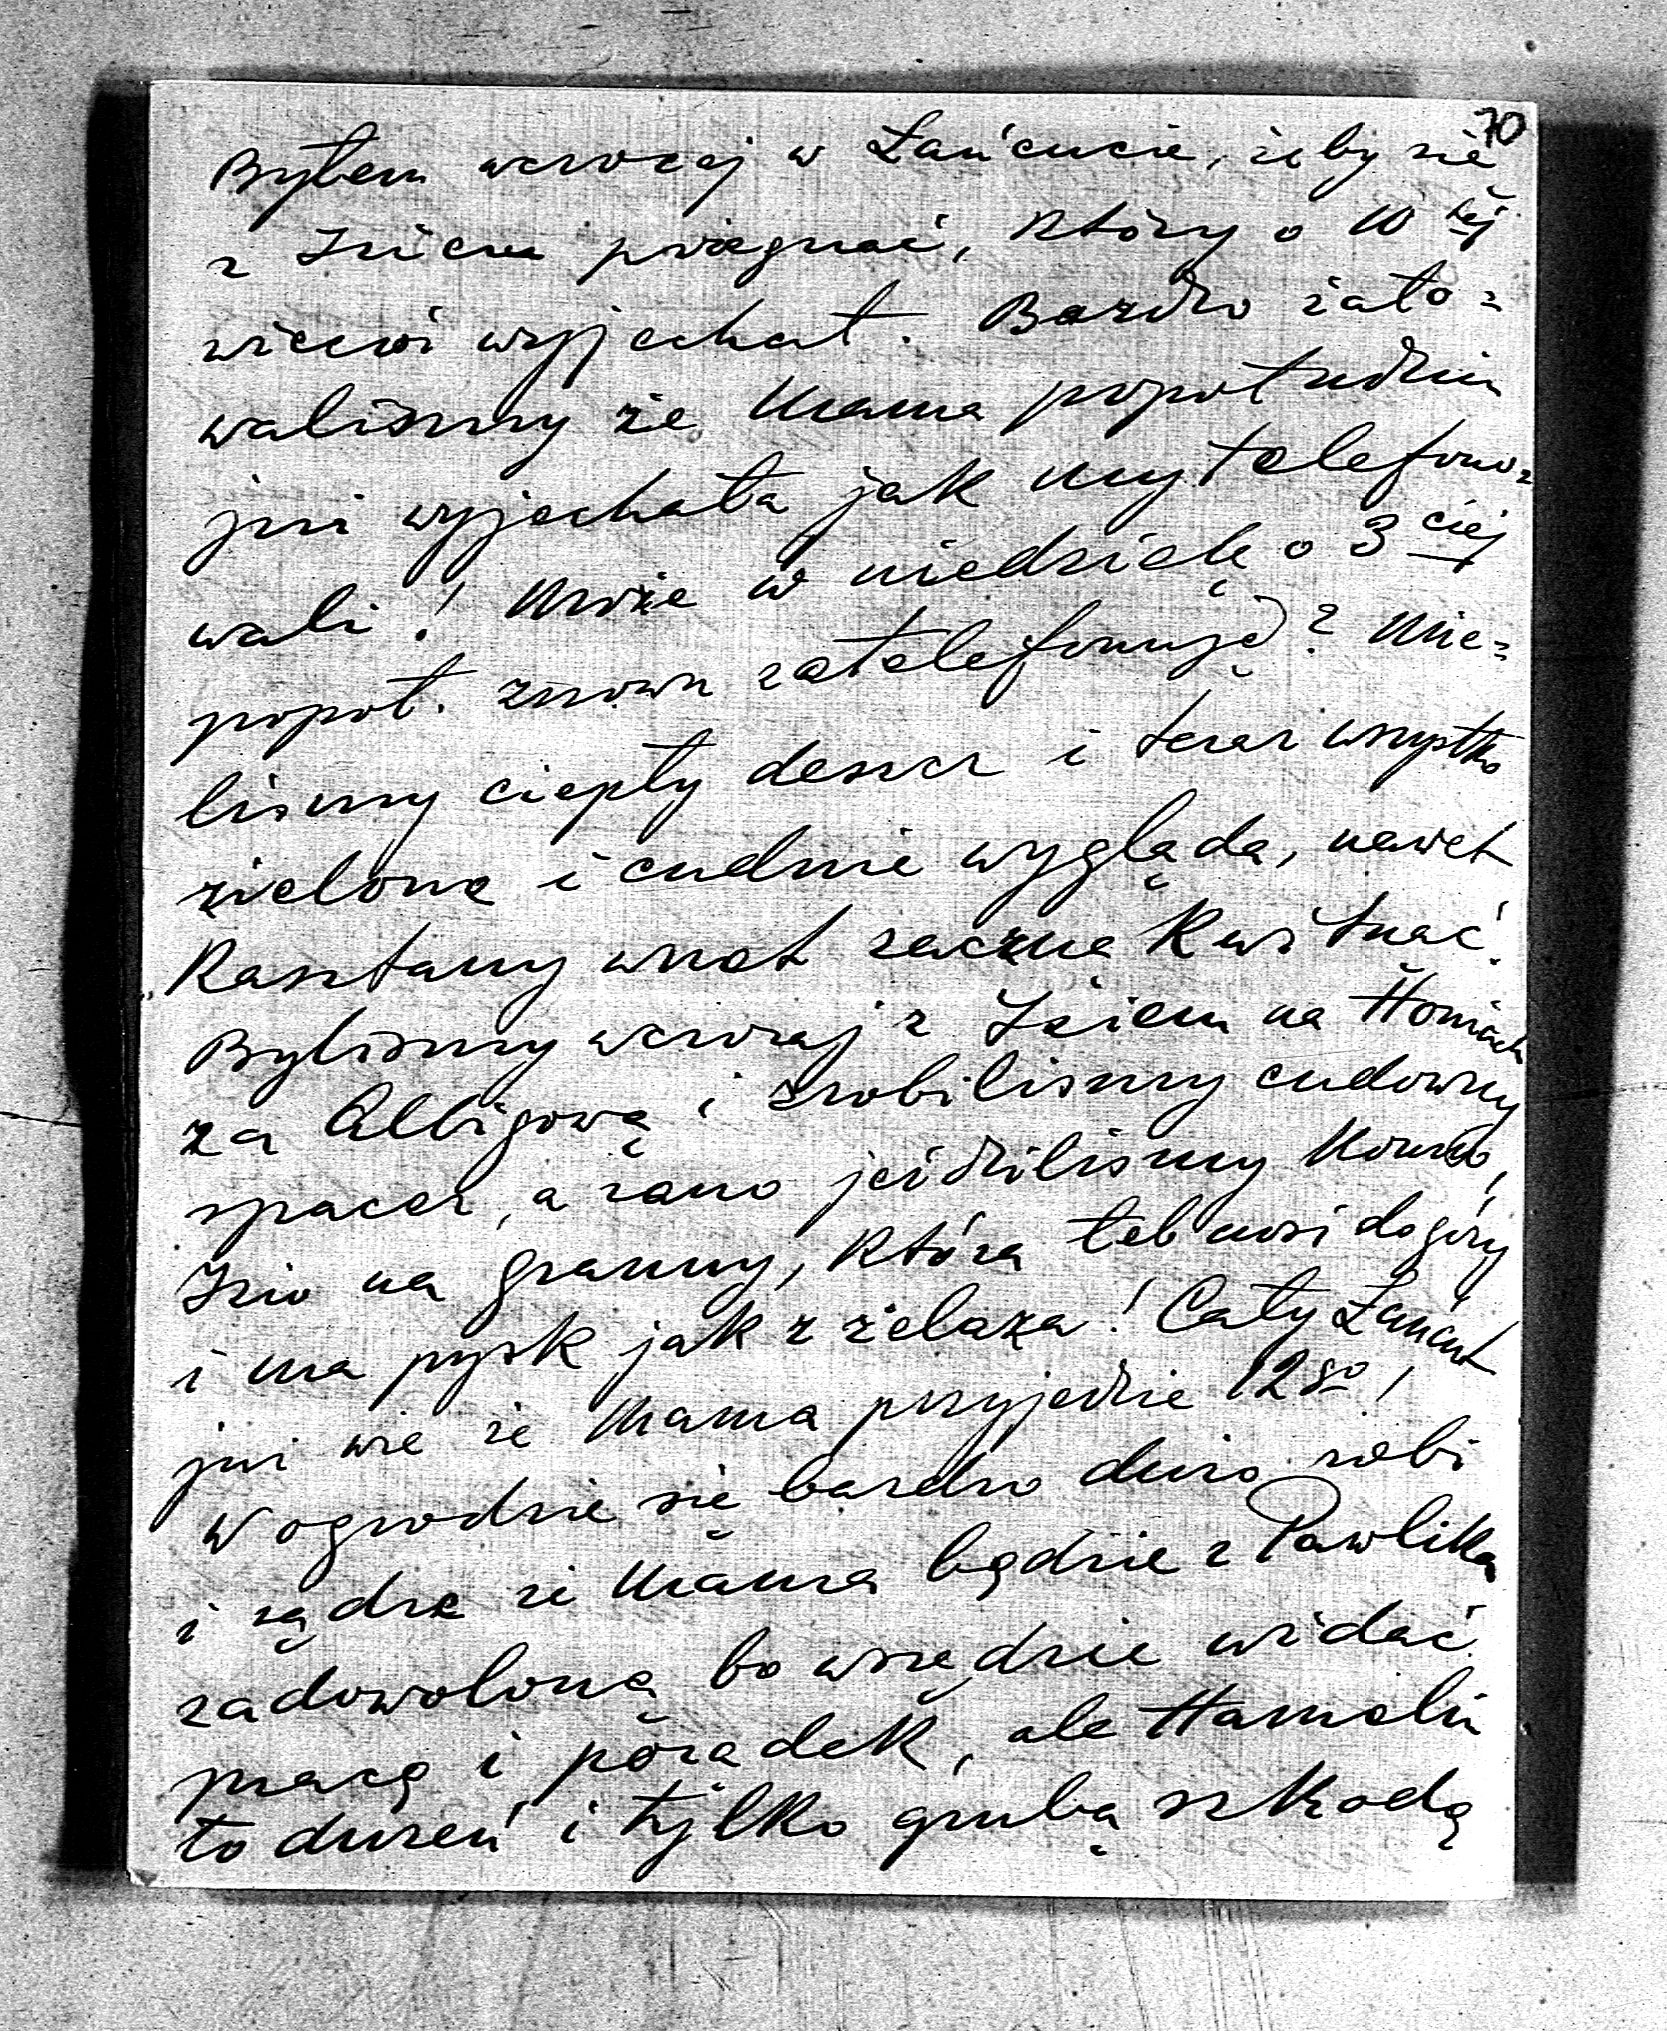 70
Byłem wczoraj w Łańcucie, żeby się
z Iziem pożegnać, który o 10 tej
wiecz. wyjechał. Bardzo żało=
waliśmy że Mama popołudniu
już wyjechała jak my telefono=
wali! Może w niedzielę o 3 ciej
popoł. znowu zatelefonuję? Mie=
liśmy ciepły deszcz i teraz wszystko
zielone i cudnie wygląda, nawet
Kasztany wnet zaczną Kwitnąć.
Byliśmy wczoraj z Iziem na Honiach
za Albigową i zrobiliśmy cudowny
spacer, a rano jeździliśmy Konno,
Izio na Granny, Która łeb nosi do góry
i ma pysk jak z żelaza! Cały Łańcut
już wie że Mama przyjedzie 12go!
W ogrodzie się bardzo dużo robi
i sądzę że Mama będzie z Pawlika
zadowoloną bo wszędzie widać
pracę i porządek, ale Hamelin
to dureń i tylko grubą szKodę